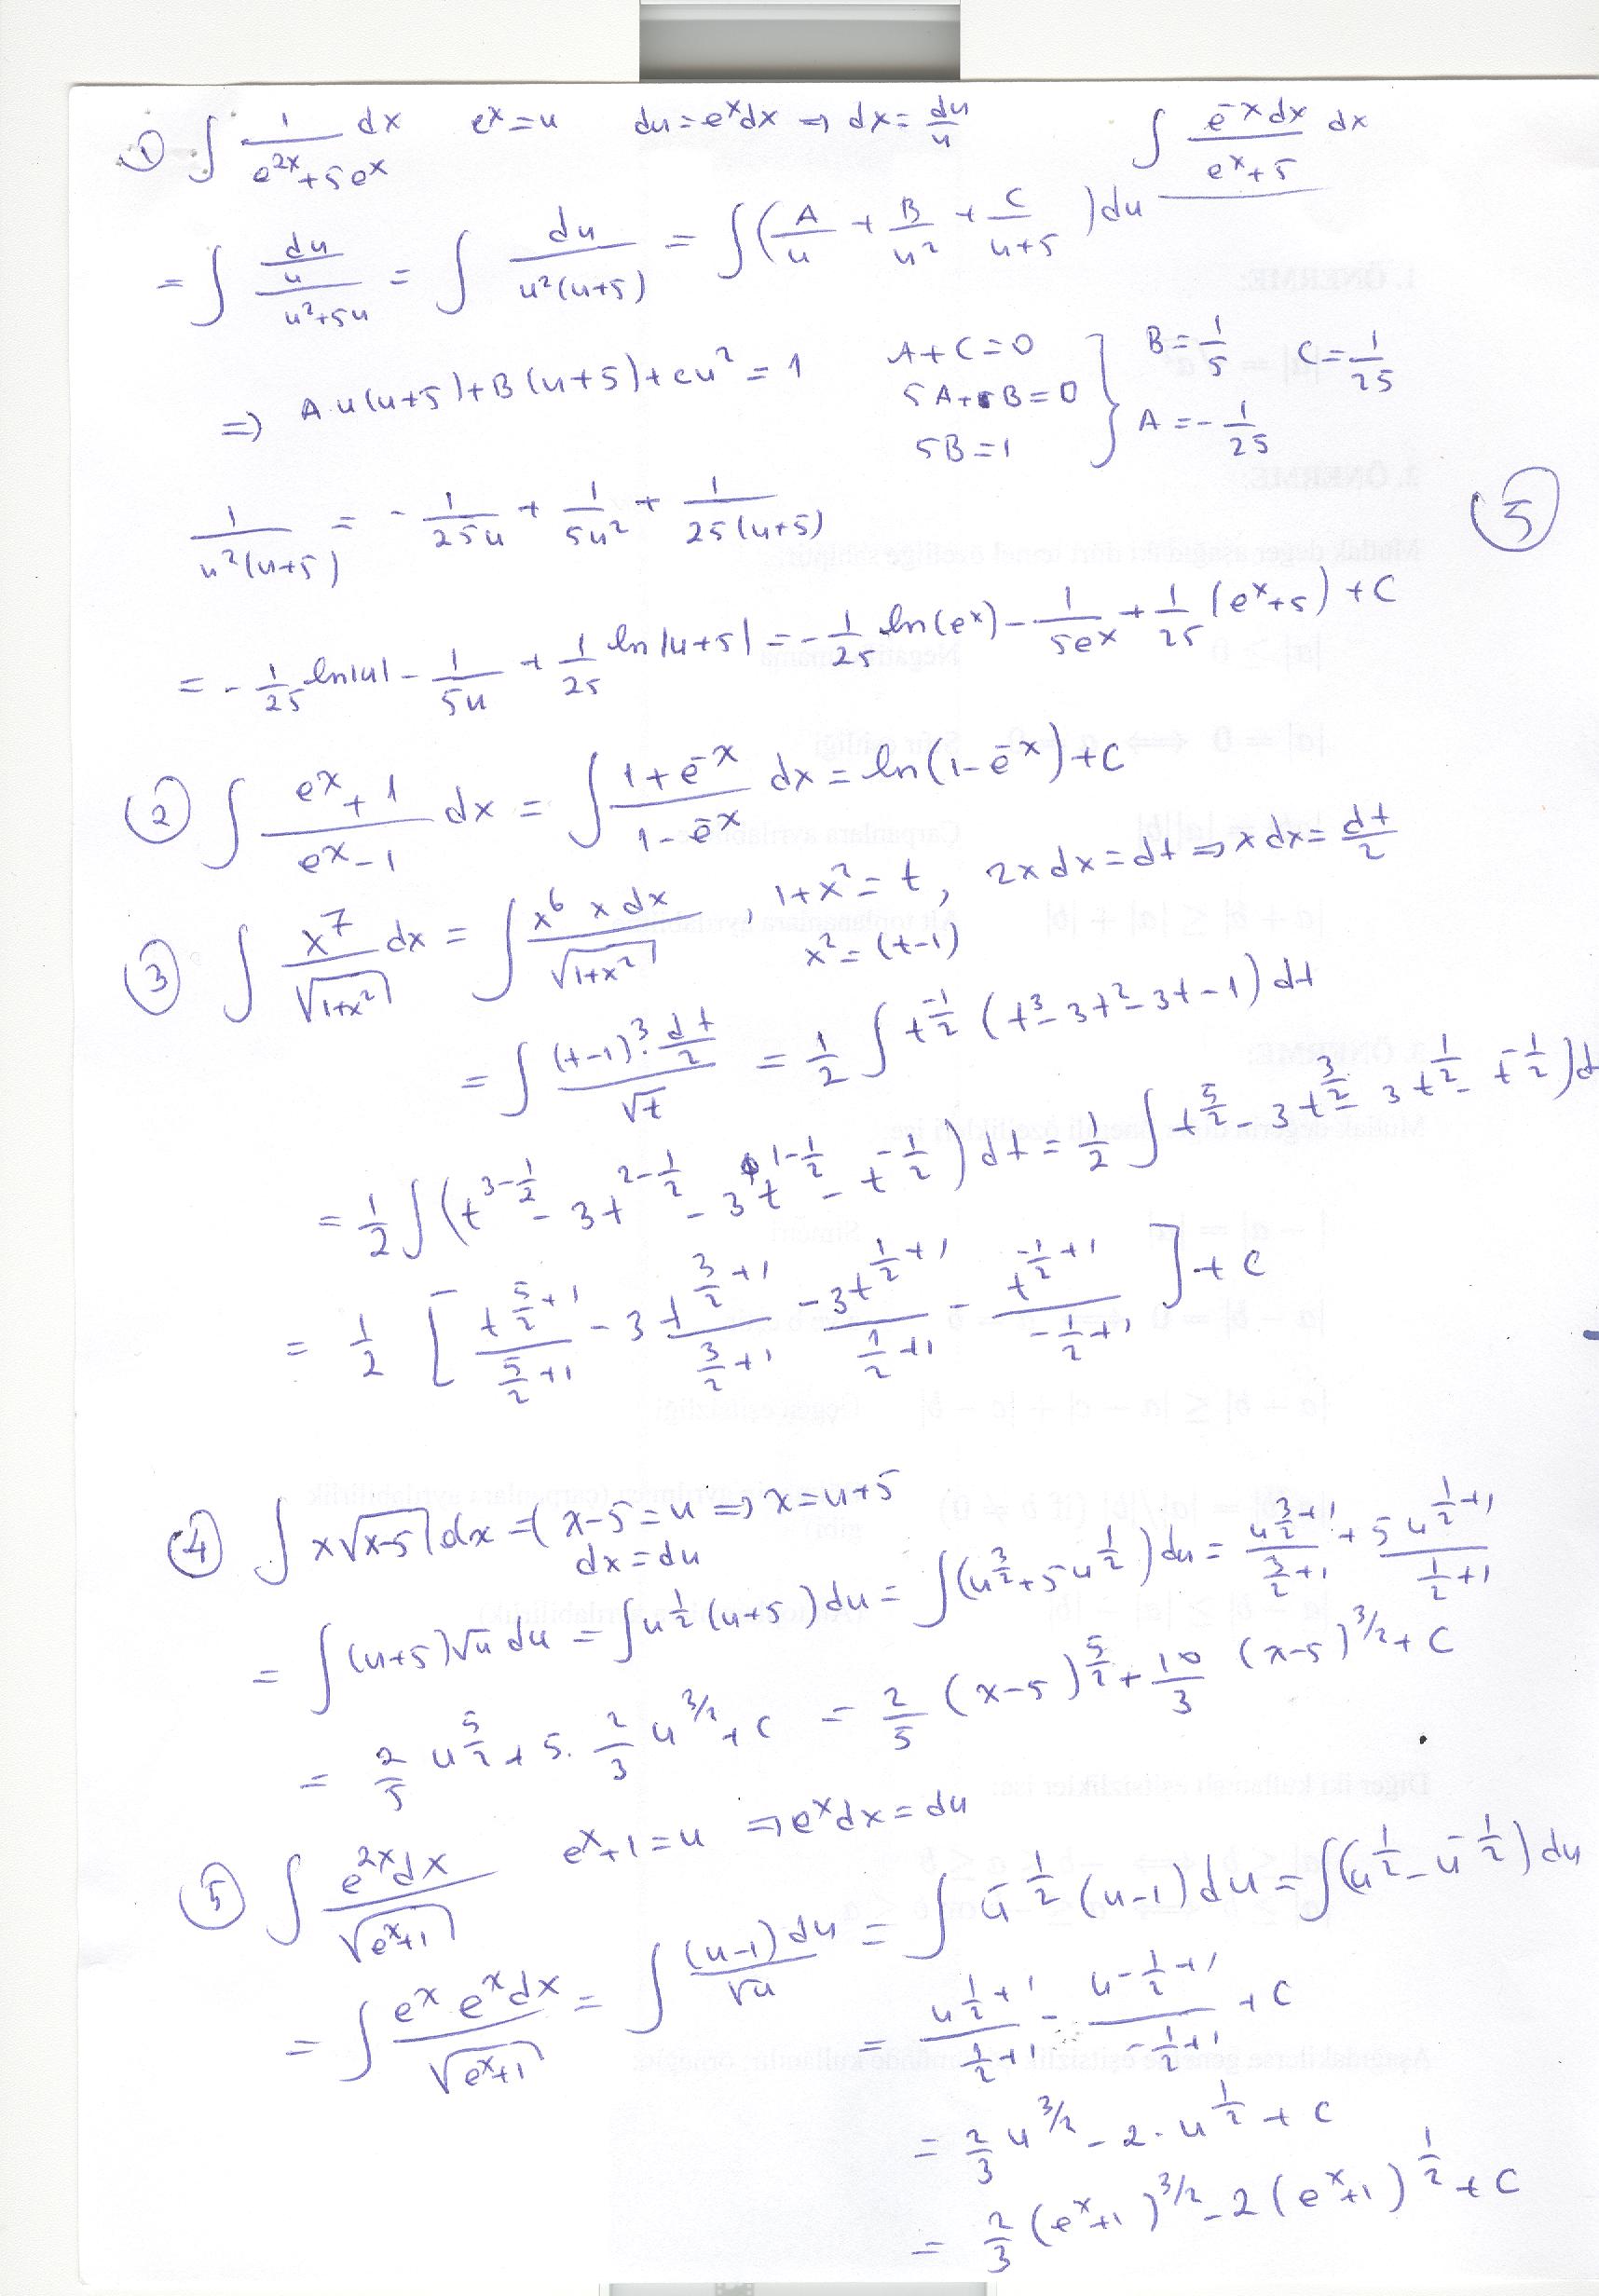 ① ∫ 1/(e^{2x}+5e^x) dx   e^x=u   du=e^x dx ⇒ dx=du/u   ∫ (e^{-x}dx)/(e^x+5) dx
= ∫ (du/u)/(u²+5u) = ∫ du/(u²(u+5)) = ∫ (A/u + B/u² + C/(u+5)) du
⇒ A.u(u+5)+B(u+5)+cu² = 1   A+C=0   5A+B=0   5B=1 }   B=1/5   C=1/25   A=-1/25
⑤
1/(u²(u+5)) = -1/(25u) + 1/(5u²) + 1/(25(u+5))
= -1/25 ln|u| - 1/(5u) + 1/25 ln|u+5| = -1/25 ln(e^x) - 1/(5e^x) + 1/25 (e^x+5) + C
② ∫ (e^x+1)/(e^x-1) dx = ∫ (1+e^{-x})/(1-e^{-x}) dx = ln(1-e^{-x})+C
③ ∫ x^7/√(1+x²) dx = ∫ (x^6 x dx)/√(1+x²) , 1+x²=t, 2x dx=dt ⇒ x dx=dt/2
x²=(t-1)
= ∫ ((t-1)³.dt/2)/√t = 1/2 ∫ t^{-1/2} (t³-3t²-3t-1) dt
= 1/2 ∫ (t^{3-1/2} - 3t^{2-1/2} - 3t^{1-1/2} - t^{-1/2}) dt = 1/2 ∫ t^{5/2} - 3t^{3/2} - 3t^{1/2} - t^{-1/2}) d
= 1/2 [ t^{5/2+1}/(5/2+1) - 3 t^{3/2+1}/(3/2+1) - 3t^{1/2+1}/(1/2+1) - t^{-1/2+1}/(-1/2+1) ] + C
④ ∫ x√(x-5) dx =( x-5=u ⇒ x=u+5
dx=du
= ∫ (u+5)√u du = ∫ u^{1/2} (u+5) du = ∫ (u^{3/2}+5u^{1/2}) du = u^{3/2+1}/(3/2+1) + 5 u^{1/2+1}/(1/2+1)
= 2/5 u^{5/2} + 5. 2/3 u^{3/2} + C = 2/5 (x-5)^{5/2} + 10/3 (x-5)^{3/2} + C
⑤ ∫ e^{2x}dx/√(e^x+1)   e^x+1=u ⇒ e^x dx=du
= ∫ e^x e^x dx/√(e^x+1) = ∫ (u-1) du/√u = ∫ u^{-1/2} (u-1) du = ∫ (u^{1/2} - u^{-1/2}) du
= u^{1/2+1}/(1/2+1) - u^{-1/2+1}/(-1/2+1) + C
= 2/3 u^{3/2} - 2.u^{1/2} + C
= 2/3 (e^x+1)^{3/2} - 2(e^x+1)^{1/2} + C